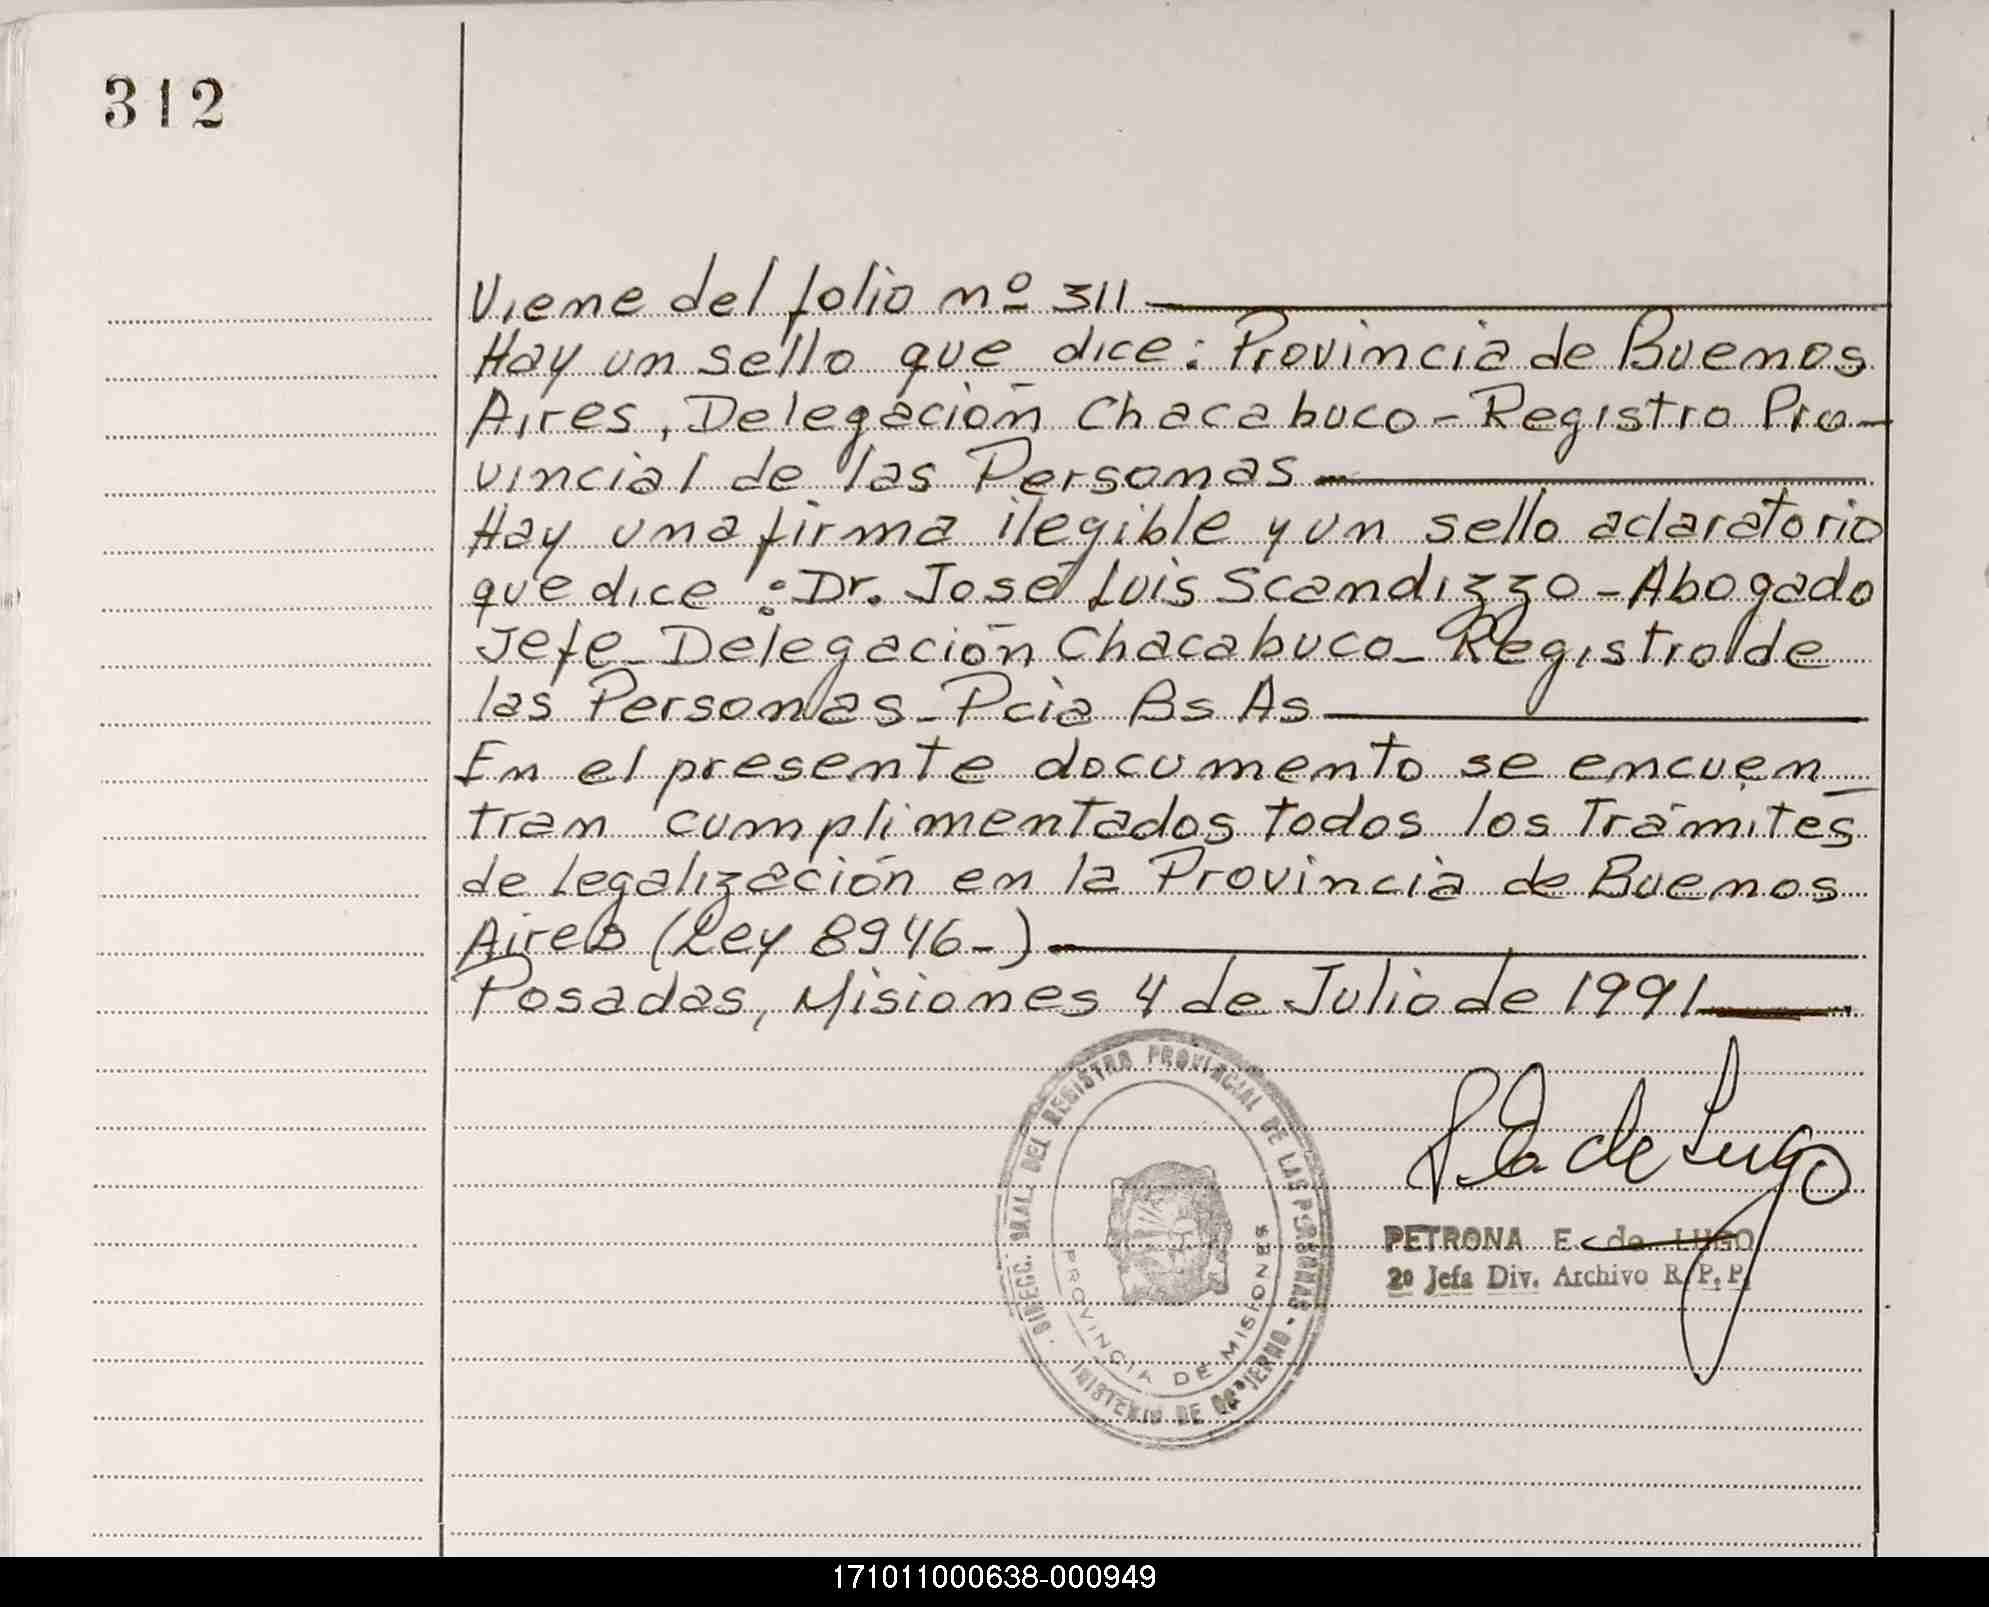 312
Viene del folio nº 311
Hay un sello que dice: Provincia de Buenos
Aires, Delegación Chacabuco - Registro Pro-
vincial de las Personas
Hay una firma ilegible y un sello aclaratorio
que dice: Dr. José Luis Scandizzo - Abogado
Jefe - Delegación Chacabuco - Registro de
las Personas - Pcia Bs As
En el presente documento se encuen-
tran cumplimentados todos los Trámites
de legalización en la Provincia de Buenos
Aires (Ley 8946-)
Posadas, Misiones 4 de Julio de 1991
P. E. de Lugo
PETRONA E. de LUGO
2º Jefa Div. Archivo R. P. P.
DIRECC. GRAL. DEL REGISTRO PROVINCIAL DE LAS PERSONAS -
MINISTERIO DE GOBIERNO
PROVINCIA DE MISIONES
171011000638-000949